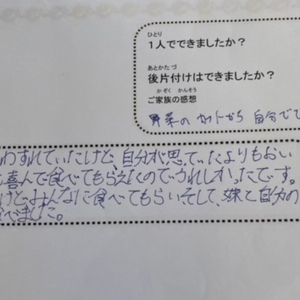 ひとり
1人でできましたか?
あとかた づ
後片付けはできましたか?
か ぞく かんそう
ご家族の感想
野菜のカットから 自分でし
わすれていたけど、自分が思っていたよりもおい
喜んで食べてもらえたのでうれしかったです。
けど、みんなに食べてもらいそして、妹と自分の
でました。